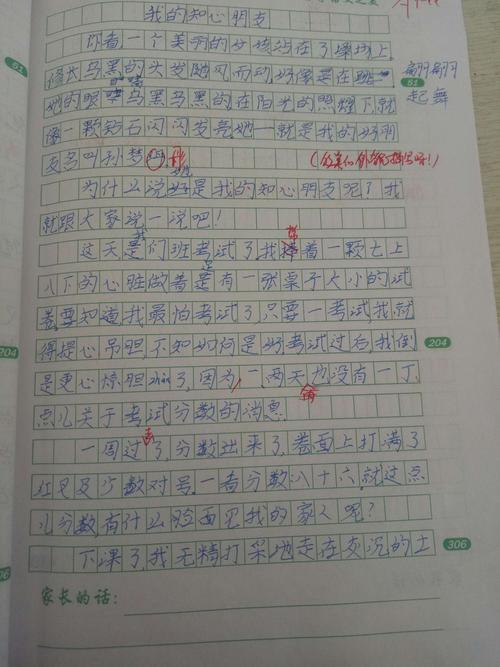 我的知心朋友
你看一个美丽的女孩站在了操场上
修长乌黑的头发随风而动好像是在跳
翩翩
起舞
她的眼睛乌黑乌黑的在阳光的照耀下就
像一颗钻石闪闪发亮她一就是我的好朋
友名叫孙梦
为什么说她是我的知心朋友呢？我
就跟大家说一说吧！
这天是我们班考试了我捧着一颗七上
八下的心胜做着是有一张桌子大小的试
卷要知道我最怕考试了只要一考试我就
得提心吊胆不知如何是好考试过后我倒
是更心惊胆zhan了，因为一两天也没有一丁
点儿关于考试分数的消息
一周过去了，分数出来了，卷面上打满了
红叉及少数对号一看分数八十六就这点
儿分数有什么脸面见我的家人呢？
下课了，我无精打采地走在灰沉的土
家长的话：
51
204
306